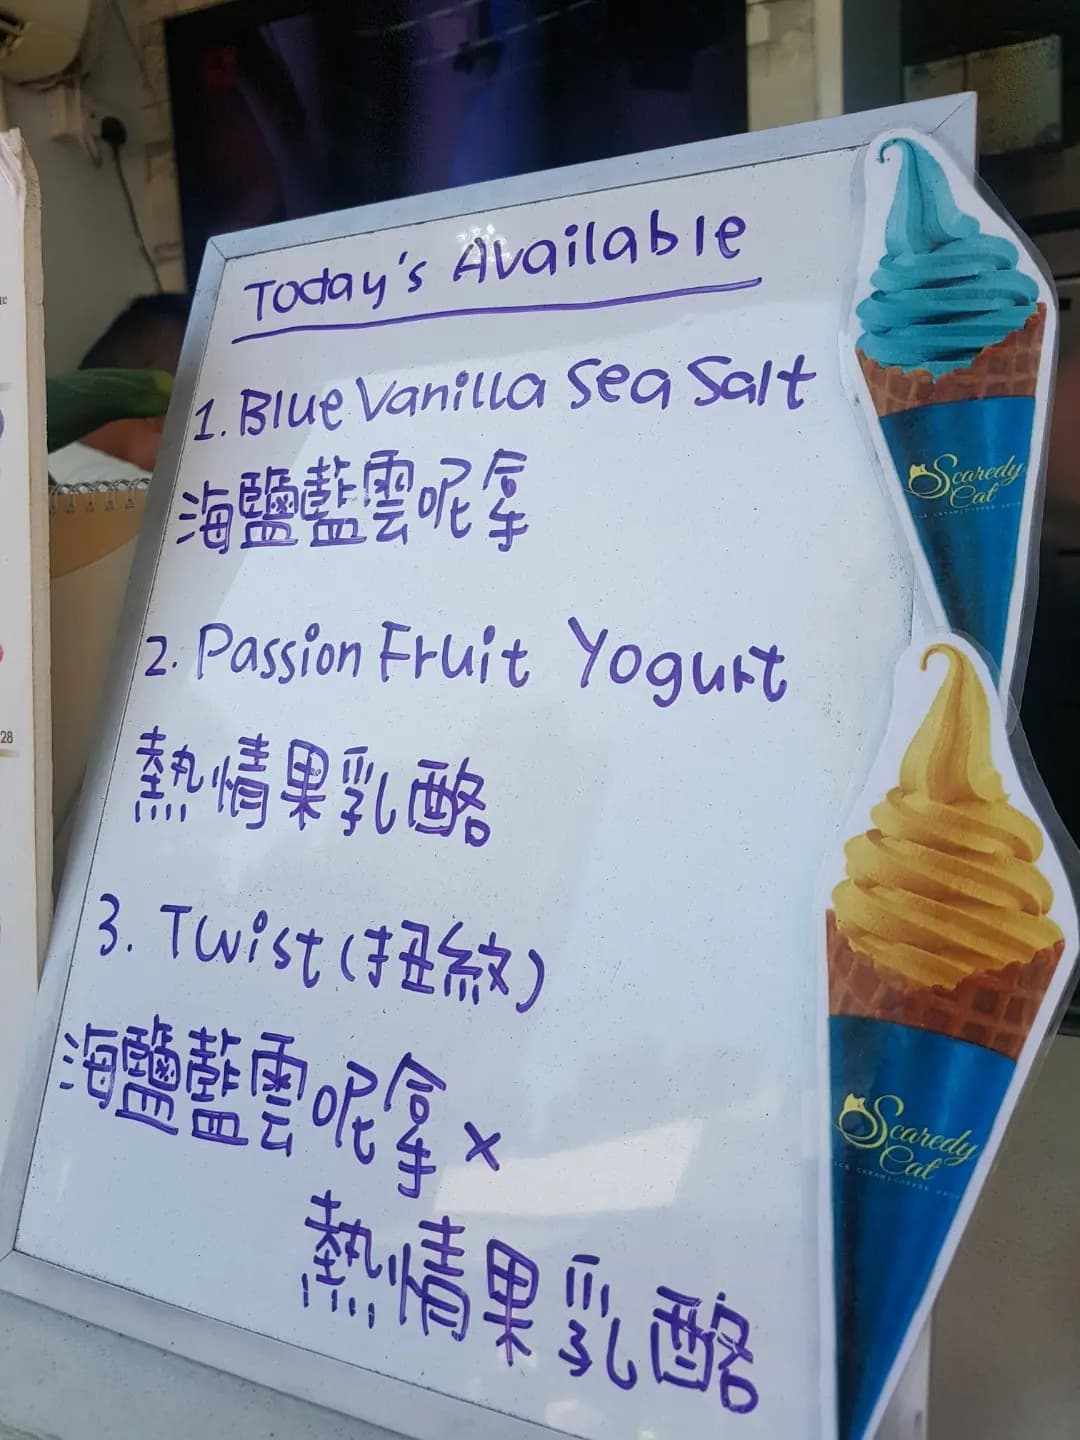 Today's Available
1. Blue Vanilla Sea Salt
海鹽藍雲呢拿
2. Passion Fruit Yogurt
熱情果乳酪
3. Twist (扭紋)
海鹽藍雲呢拿 x
熱情果乳酪
Scaredy
Cat
Scaredy
Cat
28